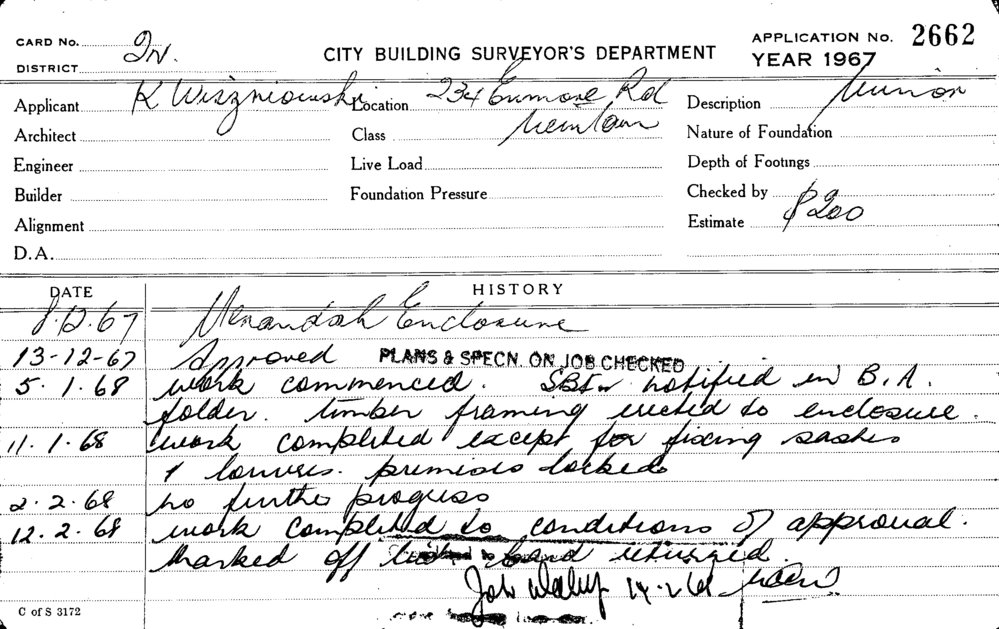 CARD No. In.
DISTRICT
CITY BUILDING SURVEYOR'S DEPARTMENT
APPLICATION No. 2662
YEAR 1967
Applicant K Wiszniowski
Location 234 Enmore Rd
Newtown
Description Minor
Architect
Class
Nature of Foundation
Engineer
Live Load
Depth of Footings
Builder
Foundation Pressure
Checked by
Alignment
Estimate $200
D.A.
DATE HISTORY
8.12.67 Verandah Enclosure
13-12-67 Approved PLANS & SPECN. ON JOB CHECKED
5.1.68 work commenced. notified in B.A.
folder. timber framing erected to enclosure.
11.1.68 work completed except for fixing sashes
& louvres. premises locked
2.2.68 no further progress
12.2.68 work completed to conditions of approval.
Marked off card returned.
C of S 3172